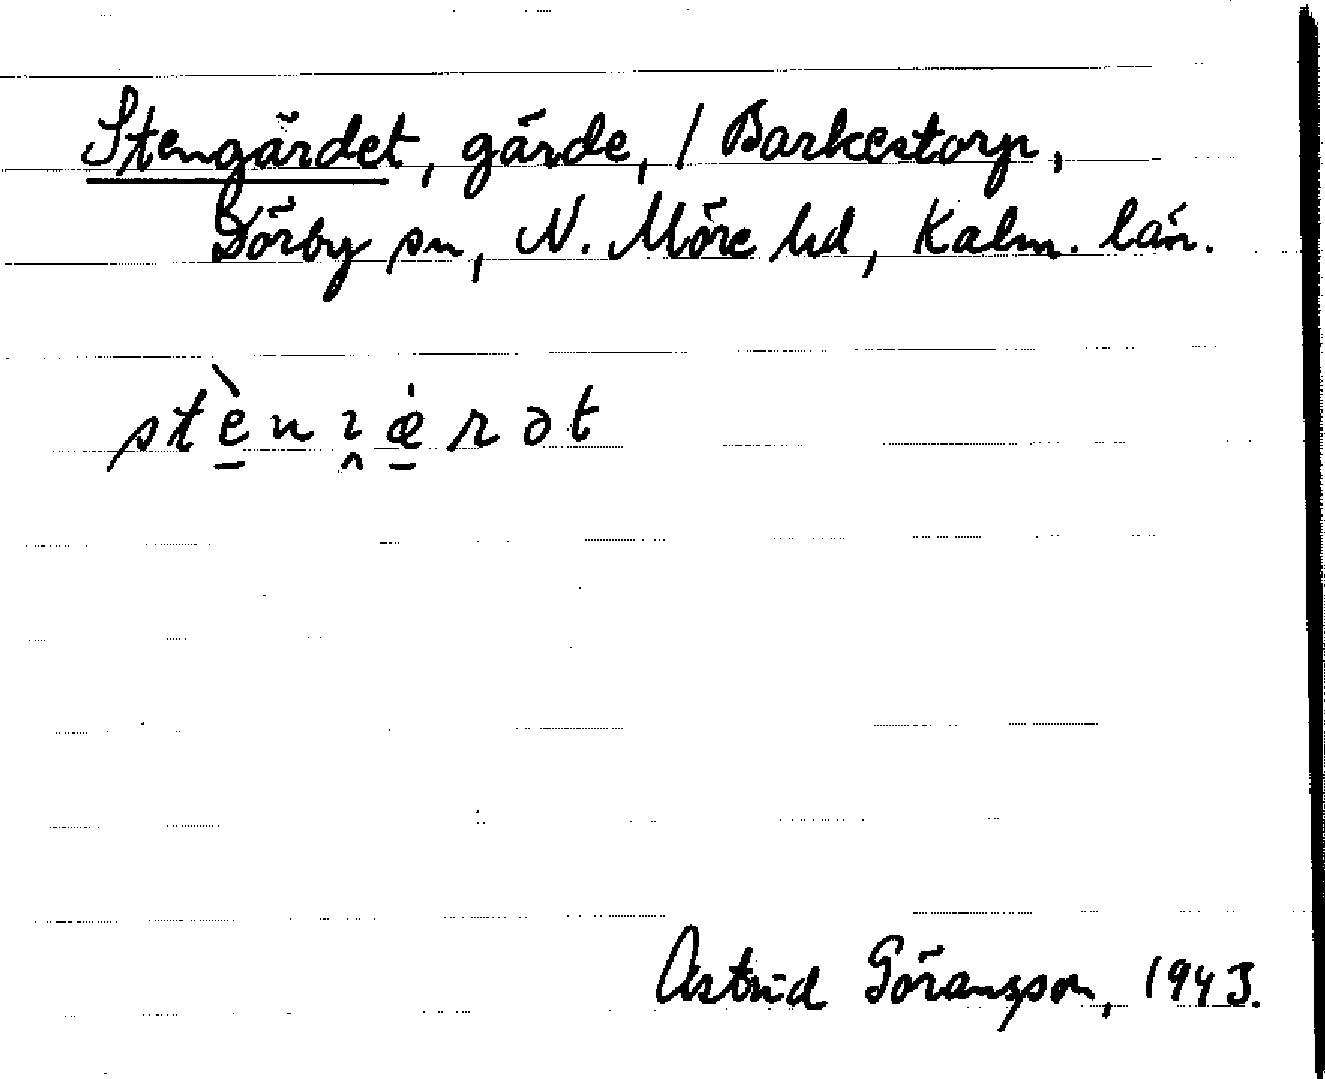 Stengärdet, gärde, / Barkestorp,
Dörby sn, N. Möre hd, Kalm. län.
stè̱nɿ̭æ̱̍rət
Astrid Göransson, 1943.